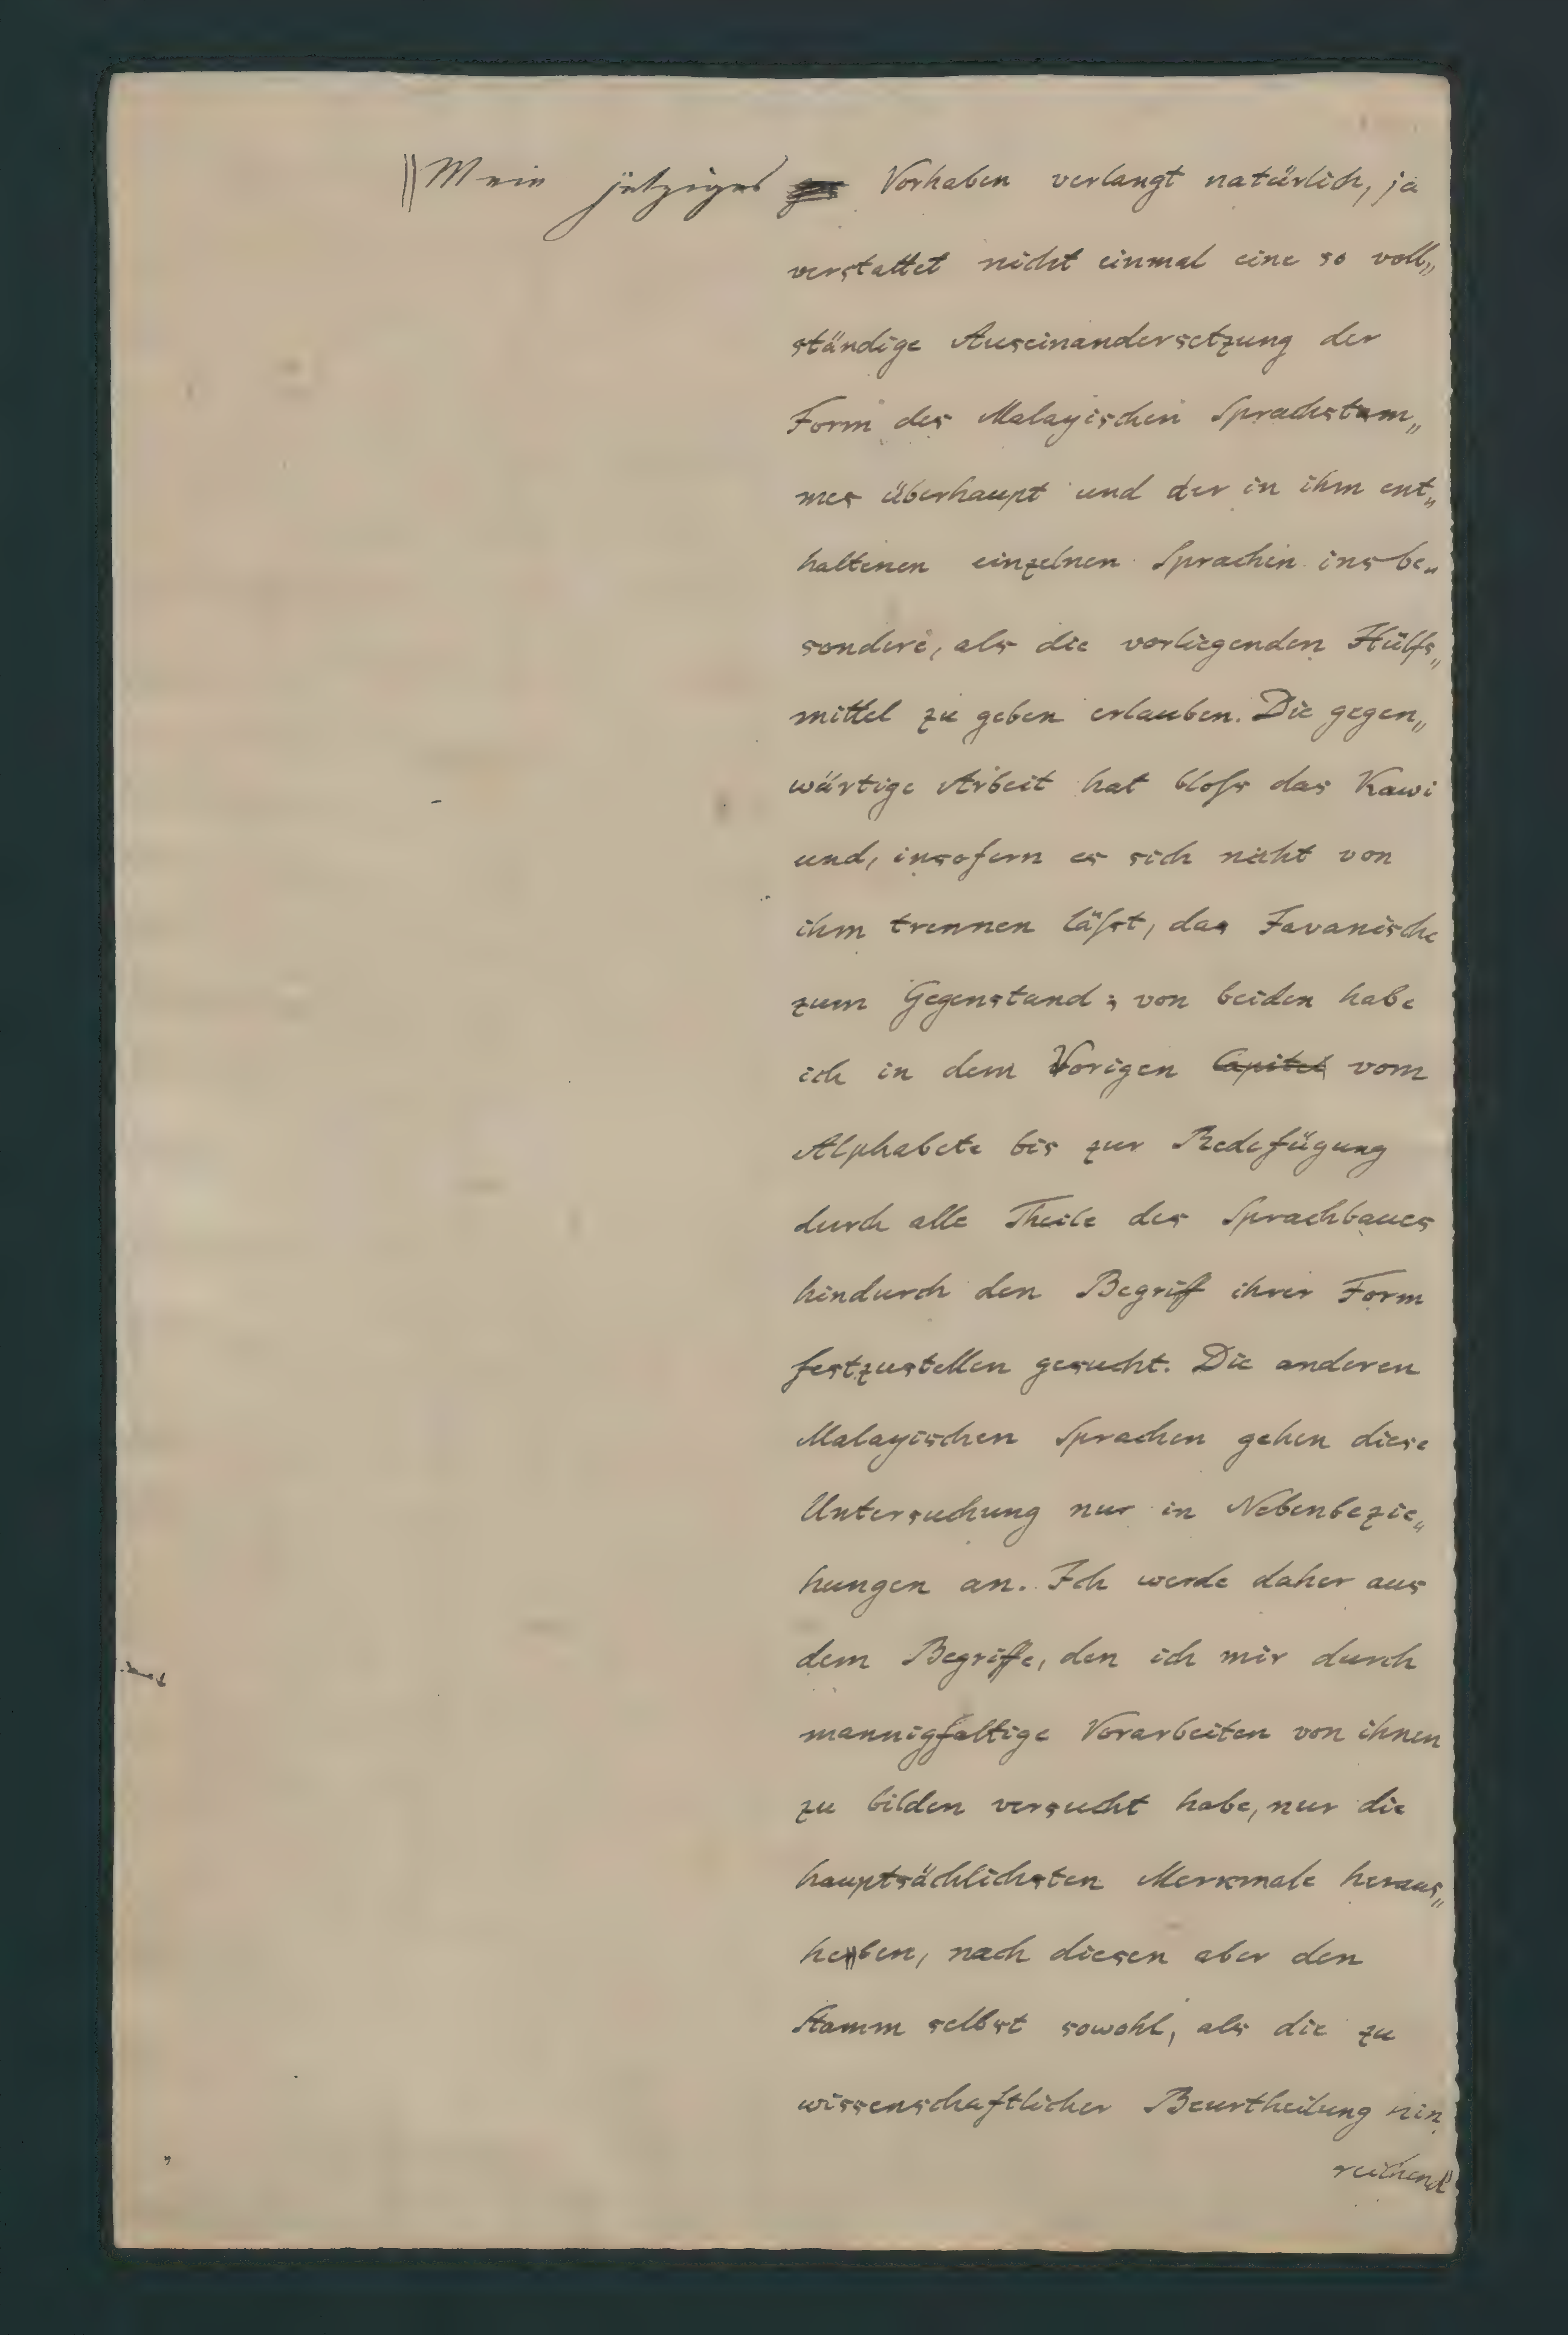 Mein jetziges Vorhaben verlangt natürlich, ja
verstattet nicht einmal eine so voll„
ständige Auseinandersetzung der
Form des Malayischen Sprachstam„
mes überhaupt und der in ihm ent„
haltenen einzelnen Sprachen insbe„
sondere, als die vorliegenden Hülfs„
mittel zu geben erlauben. Die gegen„
wärtige Arbeit hat bloſs das Kawi
und, insofern es sich nicht von
ihm trennen läſst, das Javanische
zum Gegenstand; von beiden habe
ich in dem Vorigen Capitel vom
Alphabete bis zur Redefügung
durch alle Theile des Sprachbaues
hindurch den Begriff ihrer Form
festzustellen gesucht. Die anderen
Malayischen Sprachen gehen diese
Untersuchung nur in Nebenbezie„
hungen an. Ich werde daher aus
dem Begriffe, den ich mir durch
mannigfaltige Vorarbeiten von ihnen
zu bilden versucht habe, nur die
hauptsächlichsten Merkmale heraus„
heben, nach diesen aber den
Stamm selbst sowohl, als die zu
wissenschaftlicher Beurtheilung hin„
reichend